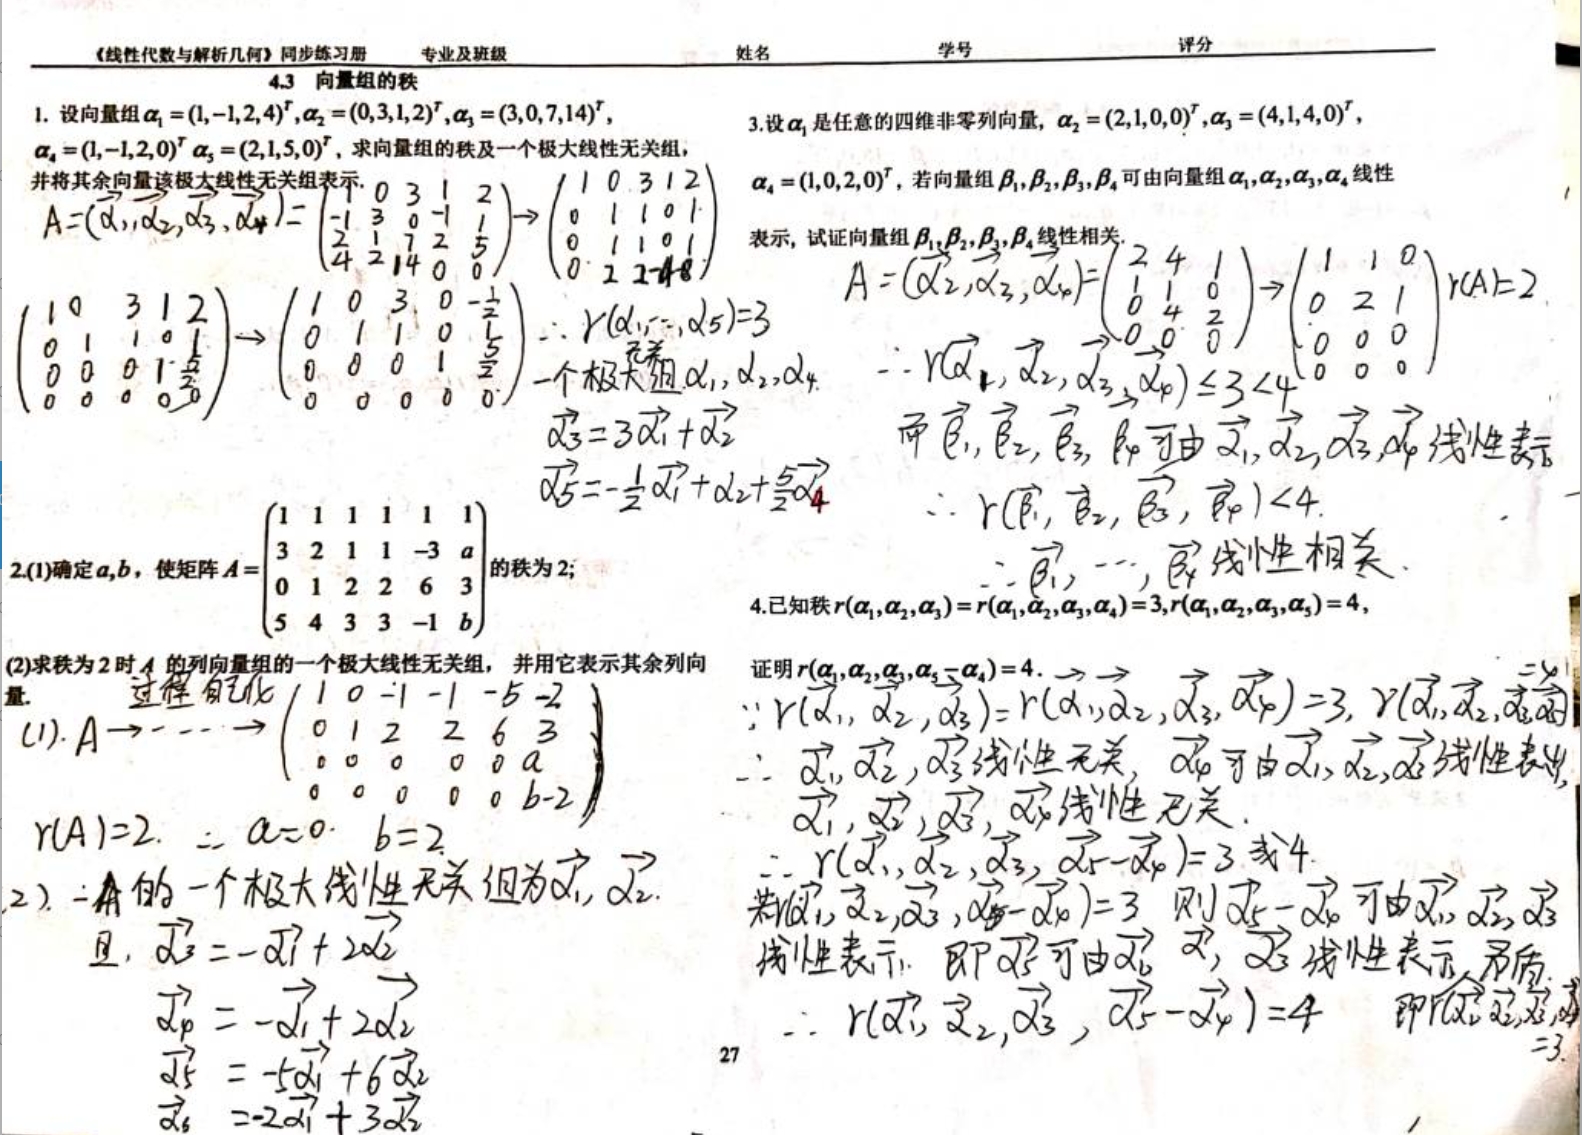 《线性代数与解析几何》同步练习册 专业及班级 姓名 学号 评分
4.3 向量组的秩
1. 设向量组α₁=(1,−1,2,4)ᵀ,α₂=(0,3,1,2)ᵀ,α₃=(3,0,7,14)ᵀ,
α₄=(1,−1,2,0)ᵀ α₅=(2,1,5,0)ᵀ, 求向量组的秩及一个极大线性无关组,
并将其余向量该极大线性无关组表示.
A=(α₁,α₂,α₃,α₄)=
1 0 3 1 2
-1 3 0 -1 1
2 1 7 2 5
4 2 14 0 0
→
1 0 3 1 2
0 1 1 0 1
0 1 1 0 1
0 2 2 -4 -8
1 0 3 1 2
0 1 1 0 1
0 0 0 1 5/2
0 0 0 0 0
→
1 0 3 0 -1/2
0 1 1 0 1
0 0 0 1 5/2
0 0 0 0 0
∴ r(α₁,…,α₅)=3
一个极大无关组 α₁, α₂, α₄.
α₃=3α₁+α₂
α₅=-1/2α₁+α₂+5/2α₄
2.(1)确定a,b, 使矩阵A=
1 1 1 1 1 1
3 2 1 1 −3 a
0 1 2 2 6 3
5 4 3 3 −1 b
的秩为2;
(2)求秩为2时A 的列向量组的一个极大线性无关组, 并用它表示其余列向
量.
过程自己化
(1). A→---→
1 0 -1 -1 -5 -2
0 1 2 2 6 3
0 0 0 0 0 a
0 0 0 0 0 b-2
r(A)=2. ∴ a=0. b=2
2). ∴A的一个极大线性无关组为α₁, α₂.
且, α₃=-α₁+2α₂
α₄=-α₁+2α₂
α₅=-5α₁+6α₂
α₆=-2α₁+3α₂
3.设α₁是任意的四维非零列向量, α₂=(2,1,0,0)ᵀ,α₃=(4,1,4,0)ᵀ,
α₄=(1,0,2,0)ᵀ, 若向量组β₁,β₂,β₃,β₄可由向量组α₁,α₂,α₃,α₄线性
表示, 试证向量组β₁,β₂,β₃,β₄线性相关.
A=(α₂,α₃,α₄)=
2 4 1
1 1 0
0 4 2
0 0 0
→
1 1 0
0 2 1
0 0 0
0 0 0
r(A)=2
∴ r(α₁, α₂, α₃, α₄)≤3<4
而 β₁, β₂, β₃, β₄可由 α₁, α₂, α₃, α₄线性表示
∴ r(β₁, β₂, β₃, β₄)<4.
∴ β₁, …, β₄线性相关.
4.已知秩r(α₁,α₂,α₃)=r(α₁,α₂,α₃,α₄)=3,r(α₁,α₂,α₃,α₅)=4,
证明r(α₁,α₂,α₃,α₅−α₄)=4.
∵ r(α₁, α₂, α₃)=r(α₁,α₂, α₃, α₄)=3, r(α₁,α₂,α₃,α₅)=4
∴ α₁, α₂, α₃线性无关, α₄可由α₁, α₂, α₃线性表出,
α₁, α₂, α₃, α₄线性无关.
∴ r(α₁, α₂, α₃, α₅-α₄)=3或4.
若r(α₁, α₂, α₃, α₅-α₄)=3 则α₅-α₄可由α₁, α₂, α₃
线性表示. 即α₅可由 α₃线性表示, 矛盾.
∴ r(α₁, α₂, α₃, α₅-α₄)=4
=3.
27